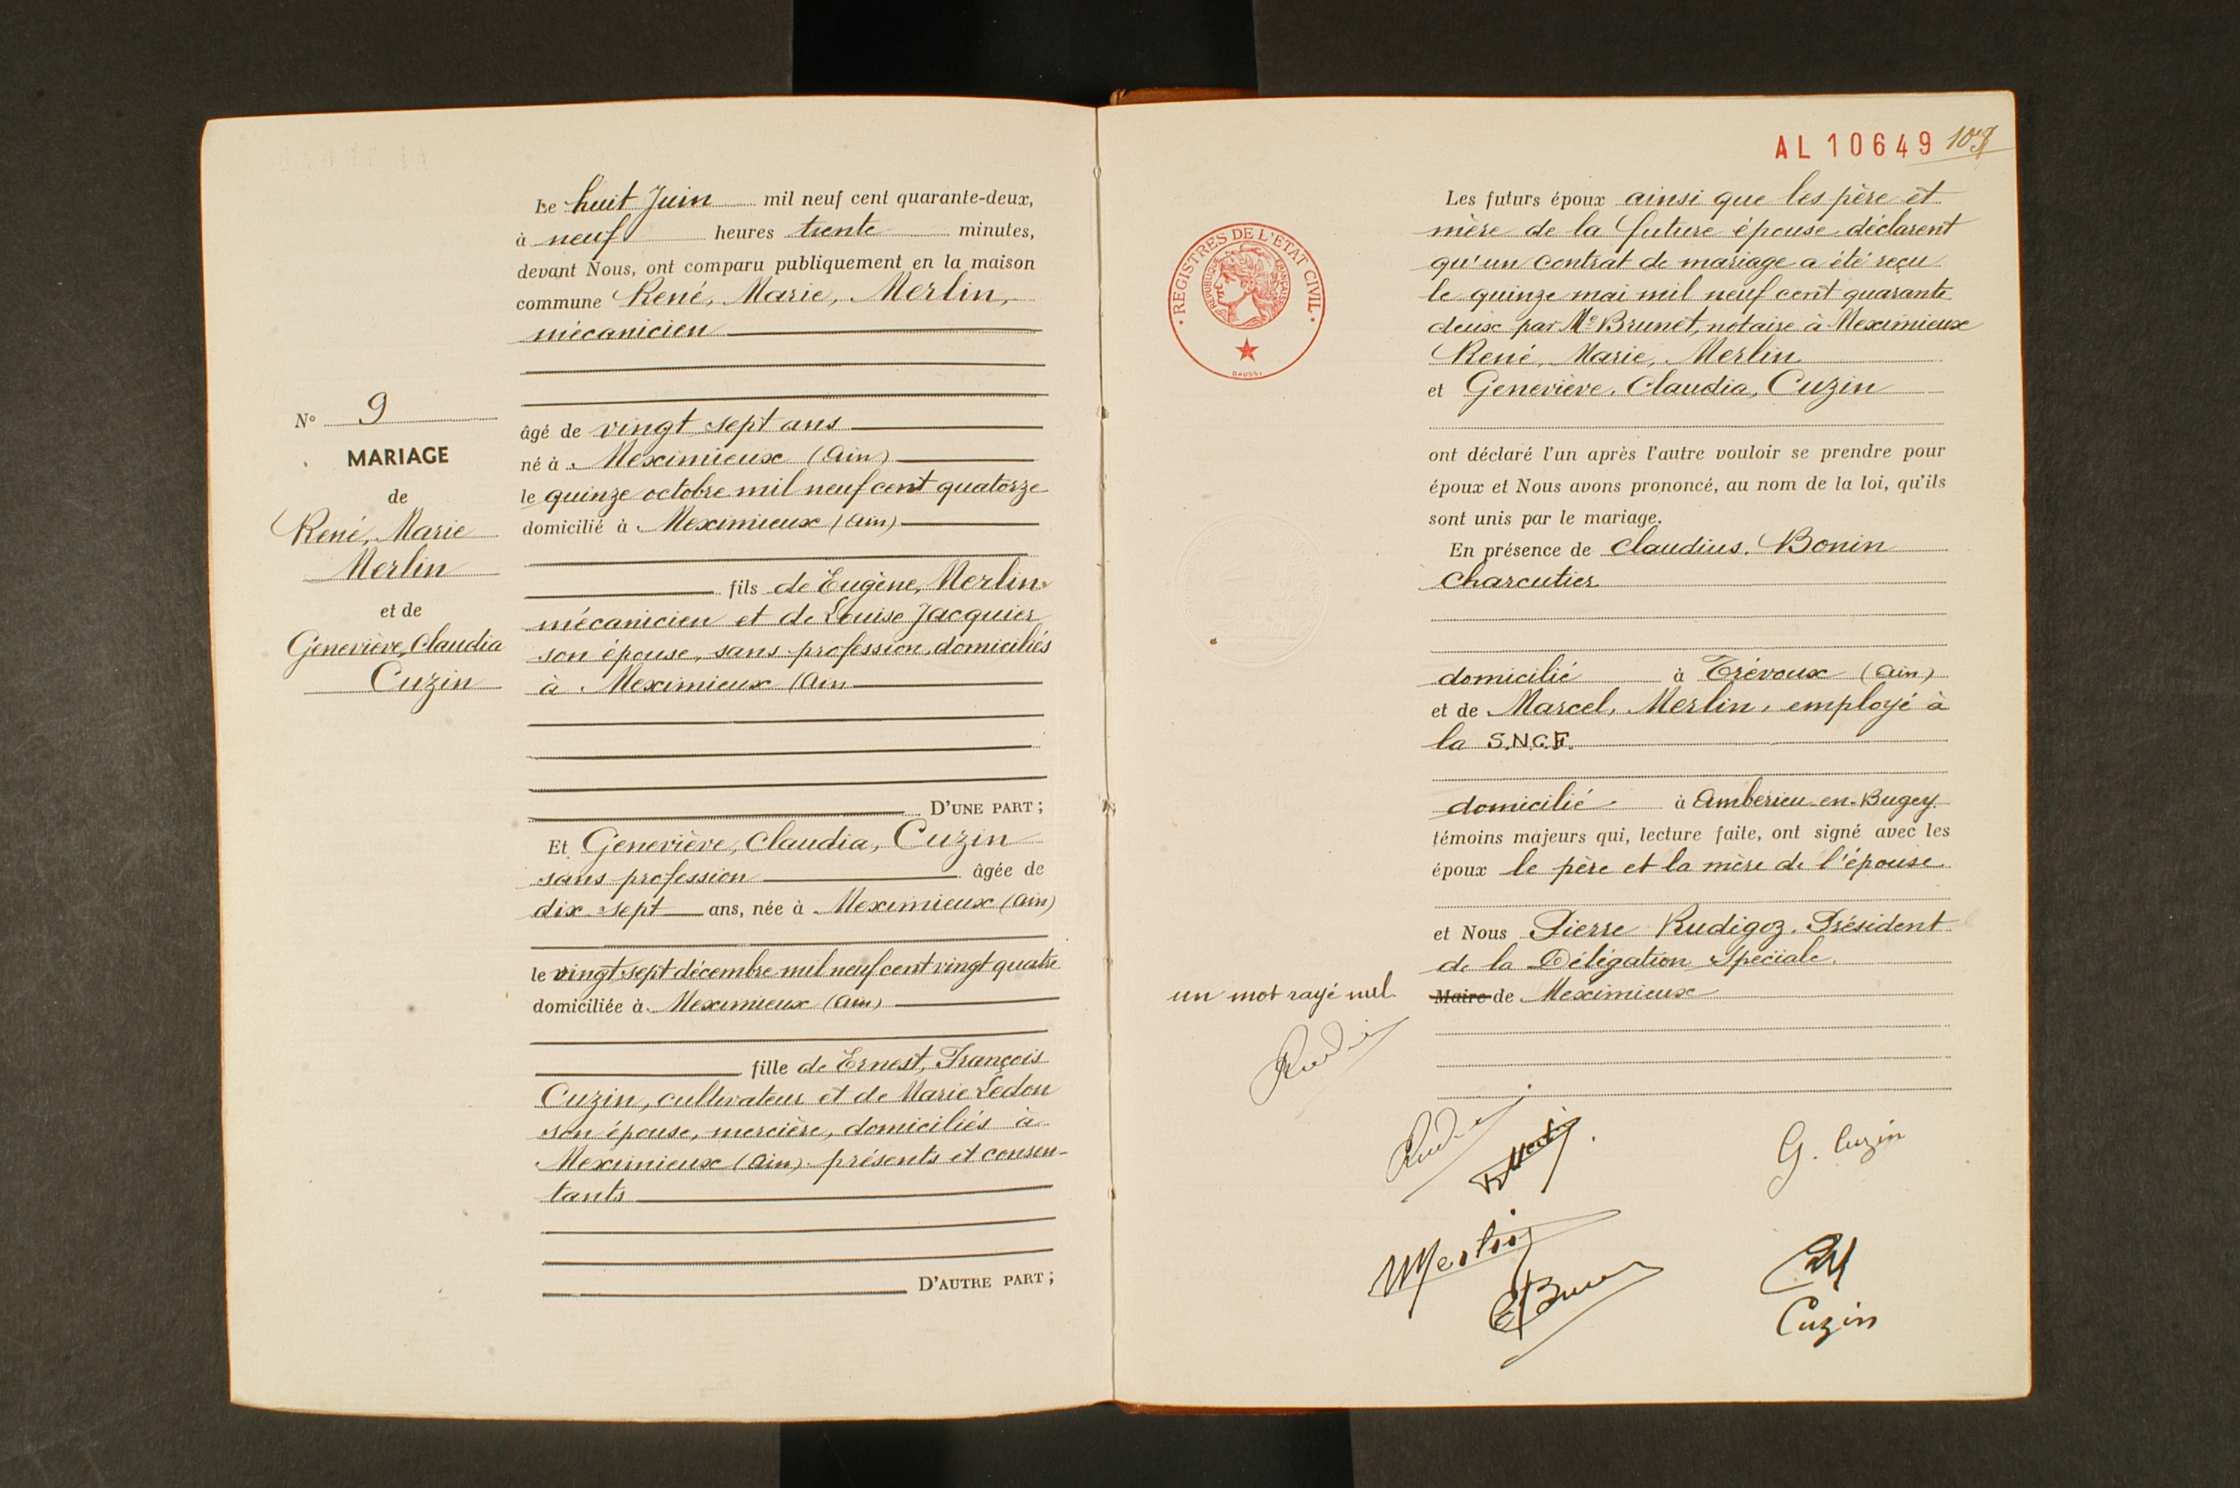 Le huit Juin mil neuf cent quarante-deux,
à neuf heures trente minutes,
devant Nous, ont comparu publiquement en la maison
commune René, Marie, Merlin,
mécanicien
N° 9
MARIAGE
de
René, Marie
Merlin
et de
Geneviève, Claudia
Cuzin
âgé de vingt sept ans
né à Meximieux (Ain)
le quinze octobre mil neuf cent quatorze
domicilié à Meximieux (Ain)
fils de Eugène, Merlin
mécanicien et de Louise Jacquier
son épouse, sans profession, domiciliés
à Meximieux (Ain
D'UNE PART ;
Et Geneviève, Claudia, Cuzin
sans profession âgée de
dix-sept ans, née à Meximieux (Ain)
le vingt sept décembre mil neuf cent vingt quatre
domiciliée à Meximieux (Ain)
fille de Ernest, François
Cuzin, cultivateur et de Marie Ledon
son épouse, mercière, domiciliés à
Meximieux (Ain) présents et consen-
tants
D'AUTRE PART ;
AL 10649 109
REGISTRES DE L'ETAT CIVIL
REPUBLIQUE FRANÇAISE
Les futurs époux ainsi que les père et
mère de la future épouse déclarent
qu'un contrat de mariage a été reçu
le quinze mai mil neuf cent quarante
deux par Me Brunet, notaire à Meximieux
René, Marie, Merlin
et Geneviève, Claudia, Cuzin
ont déclaré l'un après l'autre vouloir se prendre pour
époux et Nous avons prononcé, au nom de la loi, qu'ils
sont unis par le mariage.
En présence de Claudius, Bonin
charcutier
domicilié à Trévoux (Ain)
et de Marcel, Merlin, employé à
la S.N.C.F.
domicilié à Amberieu-en-Bugey
témoins majeurs qui, lecture faite, ont signé avec les
époux le père et la mère de l'épouse
et Nous Pierre Rudigoz, Président
de la Délégation Spéciale.
un mot rayé nul
Maire de Meximieux
G. Cuzin
Merlin
Cuzin